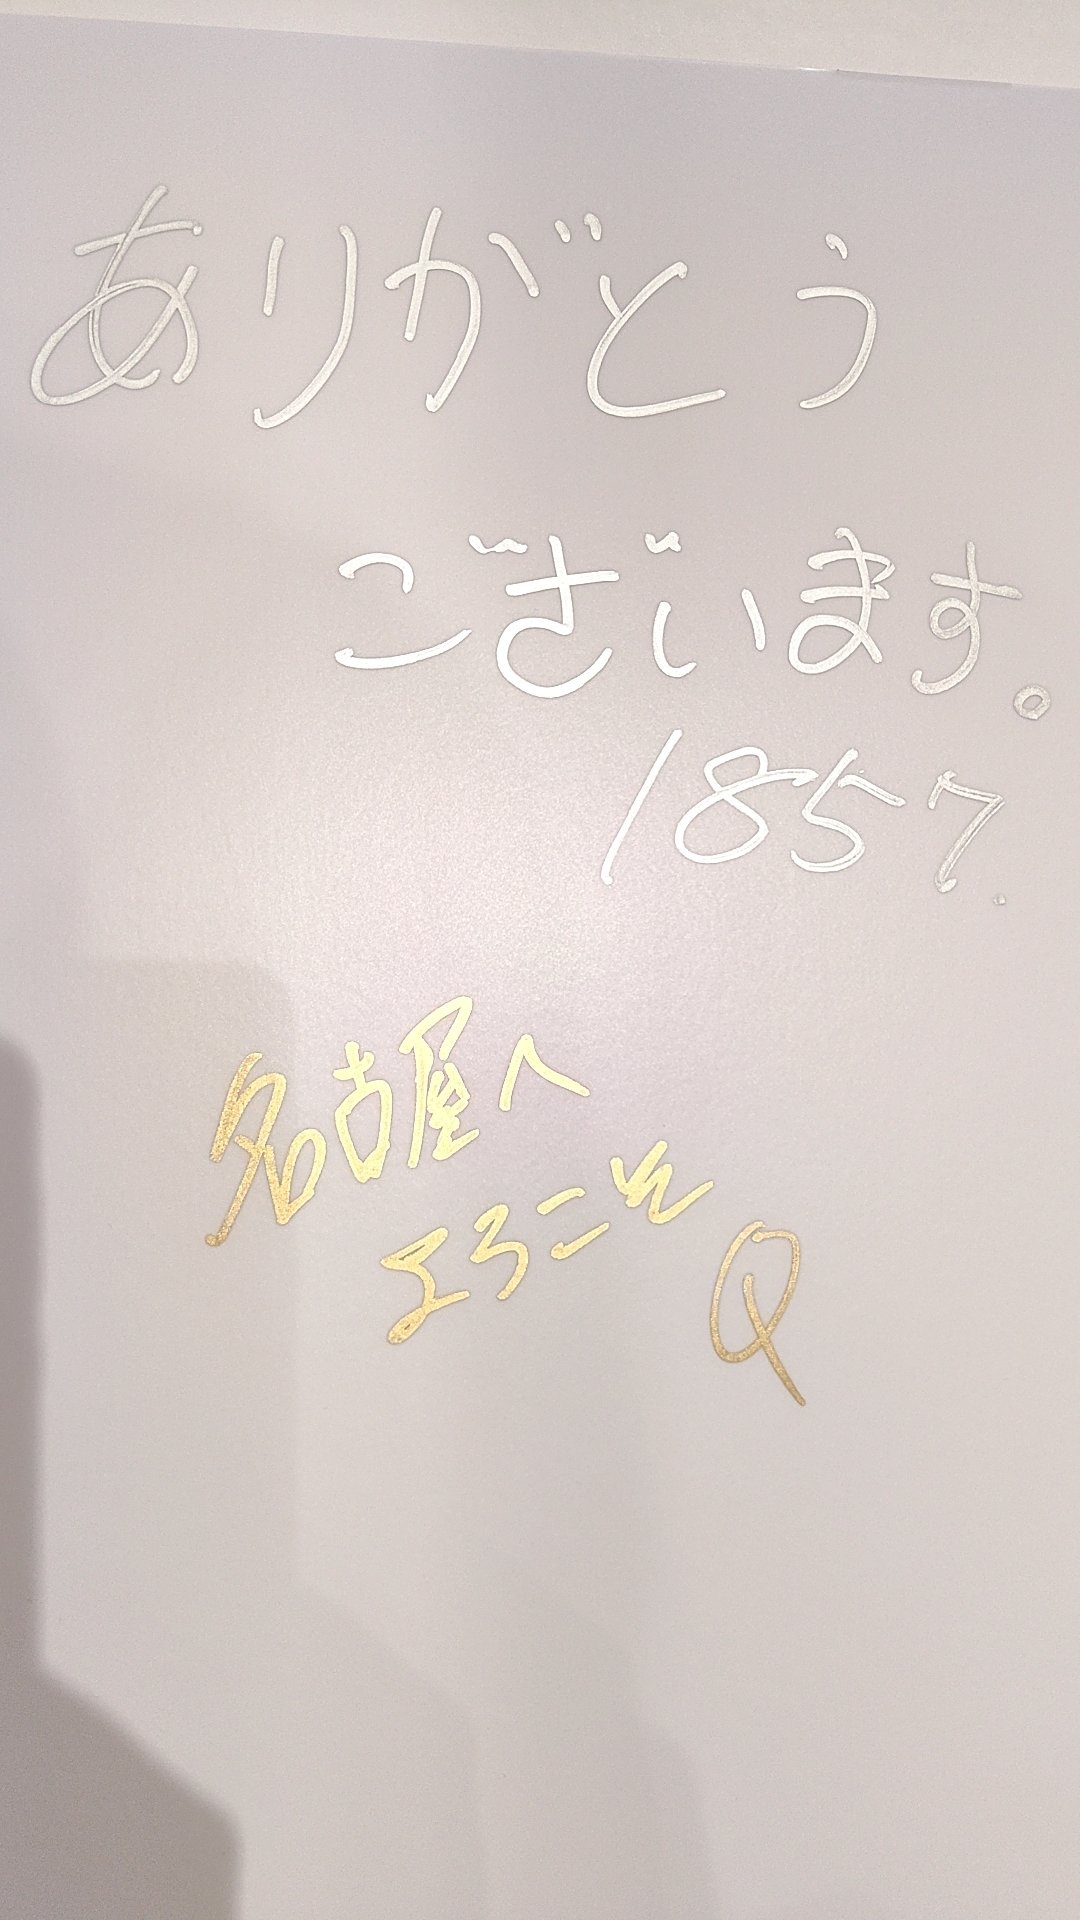 ありがとう
ございます。
1857.
名古屋へ
ようこそ
Q